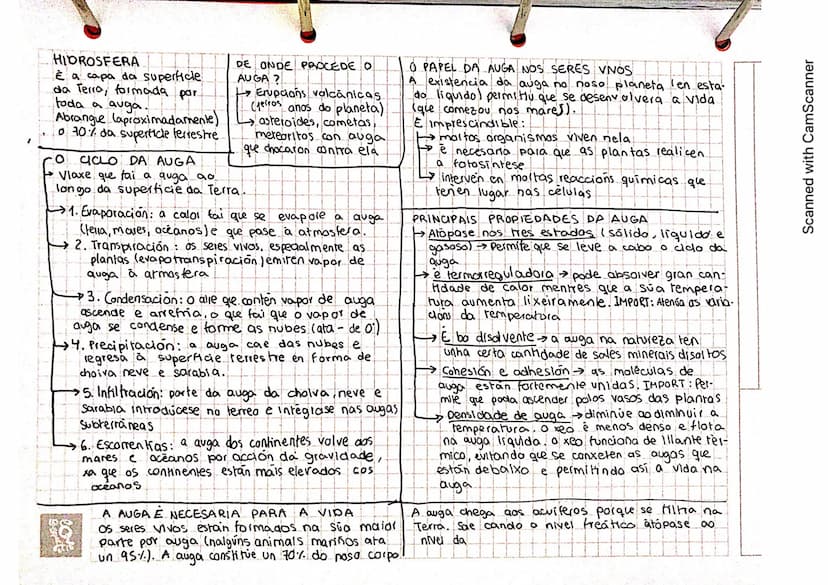 HIDROSFERA
É a capa da superficie
da Terra, formada por
toda a auga.
Abrangue (aproximadamente)
o 70% da superficie terrestre
DE ONDE PROCEDE O
AUGA?
→ Erupcións volcánicas
(1eiros anos do planeta)
→ asteroides, cometas,
meteoritos con auga
que chocaron contra ela
O PAPEL DA AUGA NOS SERES VIVOS
A existencia da auga no noso planeta (en esta-
do líquido) permitiu que se desenvolvera a vida
(que comezou nos mares).
É imprescindible:
→ moitos organismos viven nela
→ é necesario para que as plantas realicen
a fotosíntese
→ interven en moitas reaccións químicas que
teñen lugar nas células
O CICLO DA AUGA
→ Viaxe que fai a auga ao
longo da superficie da Terra.
→ 1. Evaporación: a calor fai que se evapore a auga
(terra, mares, océanos) e que pase á atmosfera.
→ 2. Transpiración: os seres vivos, especialmente as
plantas (evapotranspiración) emiten vapor de
auga á atmosfera
→ 3. Condensación: o aire que contén vapor de auga
ascende e arrefría, o que fai que o vapor de
auga se condense e forme as nubes (ata - de 0°)
→ 4. Precipitación: a auga cae das nubes e
regresa á superficie terrestre en forma de
choiva neve e sarabia.
→ 5. Infiltración: parte da auga da choiva, neve e
sarabia introdúcese no terreo e intégrase nas augas
subterráneas
→ 6. Escorrentías: a auga dos continentes volve aos
mares e océanos por acción da gravidade,
xa que os continentes están máis elevados cos
océanos
PRINCIPAIS PROPIEDADES DA AUGA
→ Atópase nos tres estados (sólido, líquido e
gasoso) → Permite que se leve a cabo o ciclo da
auga
→ é termorreguladora → pode absorver gran can-
tidade de calor mentres que a súa tempera-
tura aumenta lixeiramente. IMPORT: Atenúa as varia-
cións da temperatura
→ É bo disolvente → a auga na natureza ten
unha certa cantidade de sales minerais disoltos
→ Cohesión e adhesión → as moléculas de
auga están fortemente unidas. IMPORT: Per-
mite que poida ascender polos vasos das plantas
→ Densidade de auga → diminúe ao diminuir a
temperatura. O xeo é menos denso e flota
na auga líquida. O xeo funciona de illante tér-
mico, evitando que se conxelen as augas que
están debaixo e permitindo así a vida na
auga
A AUGA É NECESARIA PARA A VIDA
Os seres vivos están formados na súa maior
parte por auga (nalgúns animais mariños ata
un 95%). A auga constitúe un 70% do noso corpo
A auga chega aos acuíferos porque se filtra na
Terra. Sae cando o nivel freático atópase ao
nivel da
Scanned with CamScanner